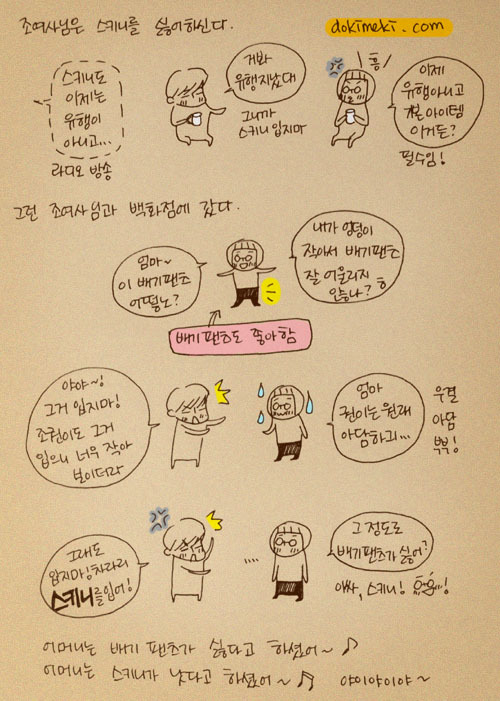 조여사님은 스키니를 싫어하신다.
dokimeki.com
스키니도
이제는
유행이
아니고...
라디오 방송
거봐
유행지났대
그니까
스키니 입지마
흥
이제
유행아니고
기본 아이템
이거든?
필수임!
그런 조여사님과 백화점에 갔다.
엄마~
이 배기팬츠
어떻노?
내가 엉덩이
작아서 배기팬츠
잘 어울리지
않드나? ㅎ
배기팬츠도 좋아함
야야~!
그거 입지마!
조권이도 그거
입으니 너무 작아
보이더라
엄마
권이는 원래
아담하긔...
우결
아담
뿍!
그래도
입지마! 차라리
스키니를입어!
....
그 정도로
배기팬츠가 싫어?
아싸, 스키니!
어머니는 배기 팬츠가 싫다고 하셨어~ ♪
어머니는 스키니가 낫다고 하셨어~ ♬ 야이야이야~